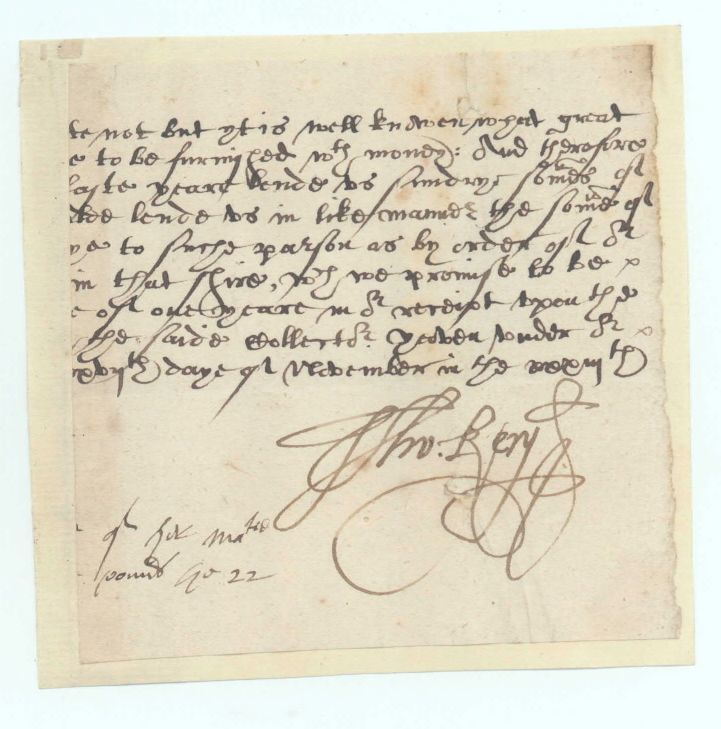 te not but yt is well knowen what great
e to be furnished wth money: And therefore
laste yeare lende vs sundrye somes of
lende vs in like manner the some of
ye to suche parson as by order of or
in that shire, wch we promise to be
of one yeare in or receipt vpon the
the saide Collector yeoven vnder or
xxvijth daye of November in the xxxiijth
Tho. Kery
of her Mates
pound 22